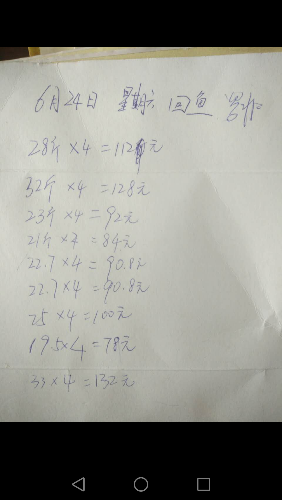 6月24日 星期六 回鱼
28斤×4=112元
32斤×4=128元
23斤×4=92元
21斤×4=84元
22.7×4=90.8元
22.7×4=90.8元
25×4=100元
19.5×4=78元
33×4=132元